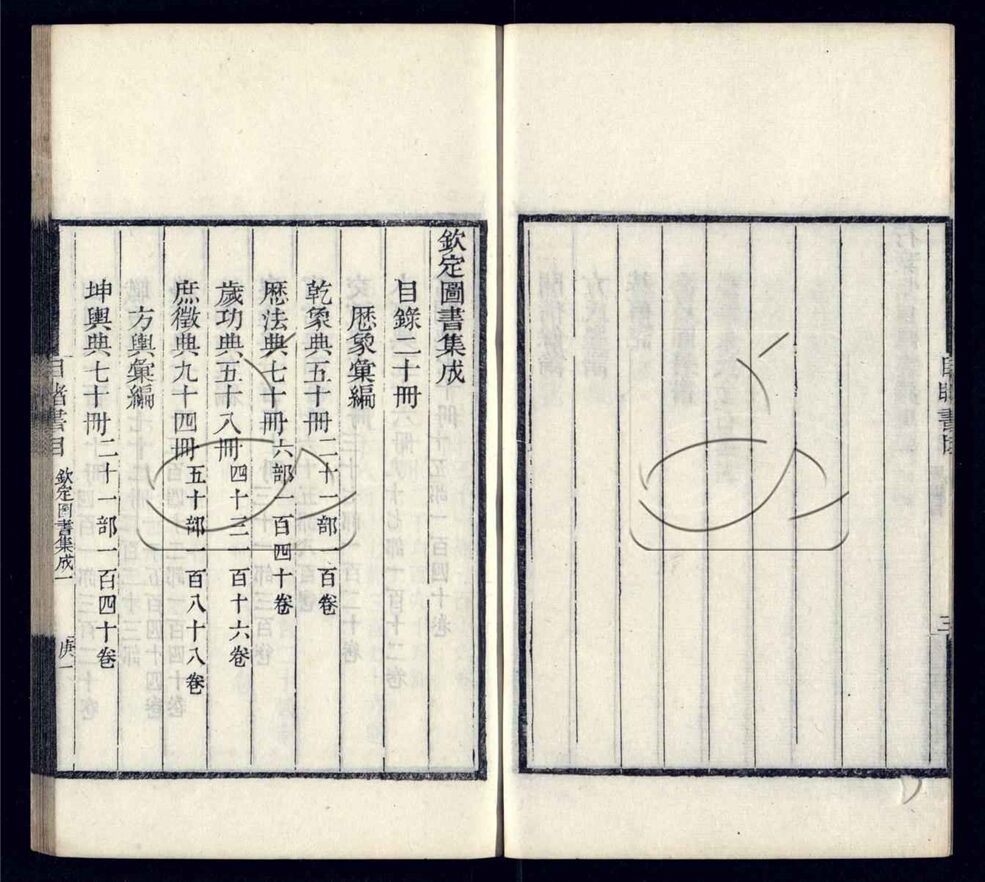 欽定圖書集成
目錄二十冊
歷象彙編
乾象典五十冊二十一部一百卷
歷法典七十冊六部一百四十卷
歲功典五十八冊四十三一百十六卷
庶徵典九十四冊五十部一百八十八卷
方輿彙編
坤輿典七十冊二十一部一百四十卷
書目
欽定圖書集成一
庚一
三